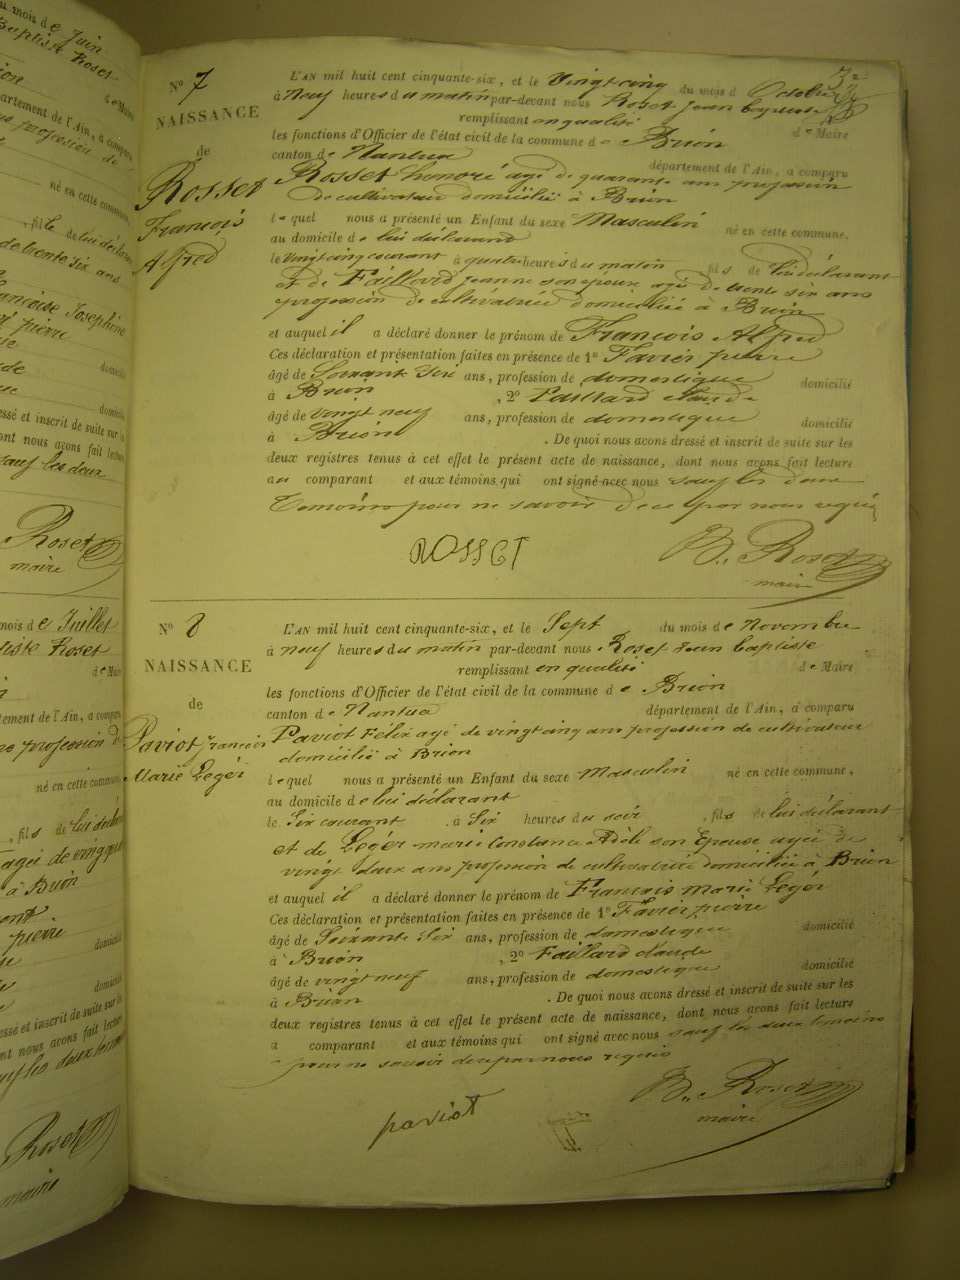 u mois de Juin
Baptiste Roset
de Maire
partement de l'Ain, a comparu
profession de
né en cette commune,
, fils de lui décla
de trente six ans
Françoise Joséphine
pierre
domicilié
domicilié
essé et inscrit de suite sur l
ont nous avons fait lecture
sauf les deux
Roset
maire
mois de Juillet
tiste Roset
de Maire
tement de l'Ain, a comparu
profession d
né en cette commune
, fils de lui décla
agée de vingt
à Brion
pierre
domicilié
domicilié
essé et inscrit de suite sur
nt nous avons fait lecture
Roset
maire
N° 7
NAISSANCE
de
Rosset
François
Alfred
L'AN mil huit cent cinquante-six, et le Vingt cinq du mois d Octobre
à Neuf heures du matin par-devant nous Roset Jean Baptiste
remplissant en qualité de Maire
les fonctions d'Officier de l'état civil de la commune de Brion
canton de Nantua département de l'Ain, a comparu
Rosset honoré agé de quarante ans profession
de cultivateur domicilié à Brion
lequel nous a présenté un Enfant du sexe Masculin né en cette commune,
au domicile de lui déclarant
le vingt cinq courant à quatre heures du matin , fils de lui déclarant
et de Faillard Jeanne son épouse agé de trente six ans
profession de cultivatrice domiciliée à Brion
et auquel il a déclaré donner le prénom de François Alfred
Ces déclaration et présentation faites en présence de 1° Favier pierre
âgé de Soixante Six ans, profession de domestique domicilié
à Brion , 2° Faillard claude
âgé de vingt neuf ans, profession de domestique domicilié
à Brion . De quoi nous avons dressé et inscrit de suite sur les
deux registres tenus à cet effet le présent acte de naissance, dont nous avons fait lecture
au comparant et aux témoins qui ont signé avec nous sauf les deux
Témoins pour ne savoir de ce par nous requis
ROSSET
B. Roset
maire
N° 8
NAISSANCE
de
Paviot François
Marie Legér
L'AN mil huit cent cinquante-six, et le Sept du mois de Novembre
à neuf heures du matin par-devant nous Roset Jean baptiste
remplissant en qualité de Maire
les fonctions d'Officier de l'état civil de la commune de Brion
canton de Nantua département de l'Ain, a comparu
Paviot Félix agé de vingt cinq ans profession de cultivateur
domicilié à Brion
lequel nous a présenté un Enfant du sexe Masculin né en cette commune,
au domicile de lui déclarant
le Six courant . à Six heures du soir , fils de lui déclarant
et de Legér marie Constance Adèle son Epouse agée de
vingt deux ans profession de cultivatrice domiciliée à Brion
et auquel il a déclaré donner le prénom de François Marie Legér
Ces déclaration et présentation faites en présence de 1° Favier pierre
âgé de Soixante Six ans, profession de domestique domicilié
à Brion , 2° Faillard claude
âgé de vingt neuf ans, profession de domestique domicilié
à Brion . De quoi nous avons dressé et inscrit de suite sur les
deux registres tenus à cet effet le présent acte de naissance, dont nous avons fait lecture
a comparant et aux témoins qui ont signé avec nous sauf les deux temoins
pour ne savoir de ce par nous requis
paviot
B. Roset
maire